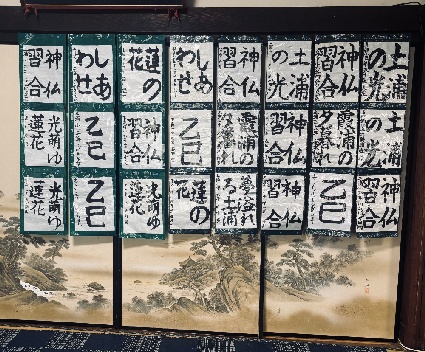 土浦
の光
土浦
の光
神仏
習合
神仏
習合
霞浦の
夕暮れ
乙巳
土浦
の光
神仏
習合
神仏
習合
神仏
習合
霞浦の
夕暮れ
夢溢れ
る土浦
しあ
わせ
乙巳
蓮の
花
蓮の
花
神仏
習合
光萌ゆ
蓮花
しあ
わせ
乙巳
乙巳
神仏
習合
光萌ゆ
蓮花
光萌ゆ
蓮花